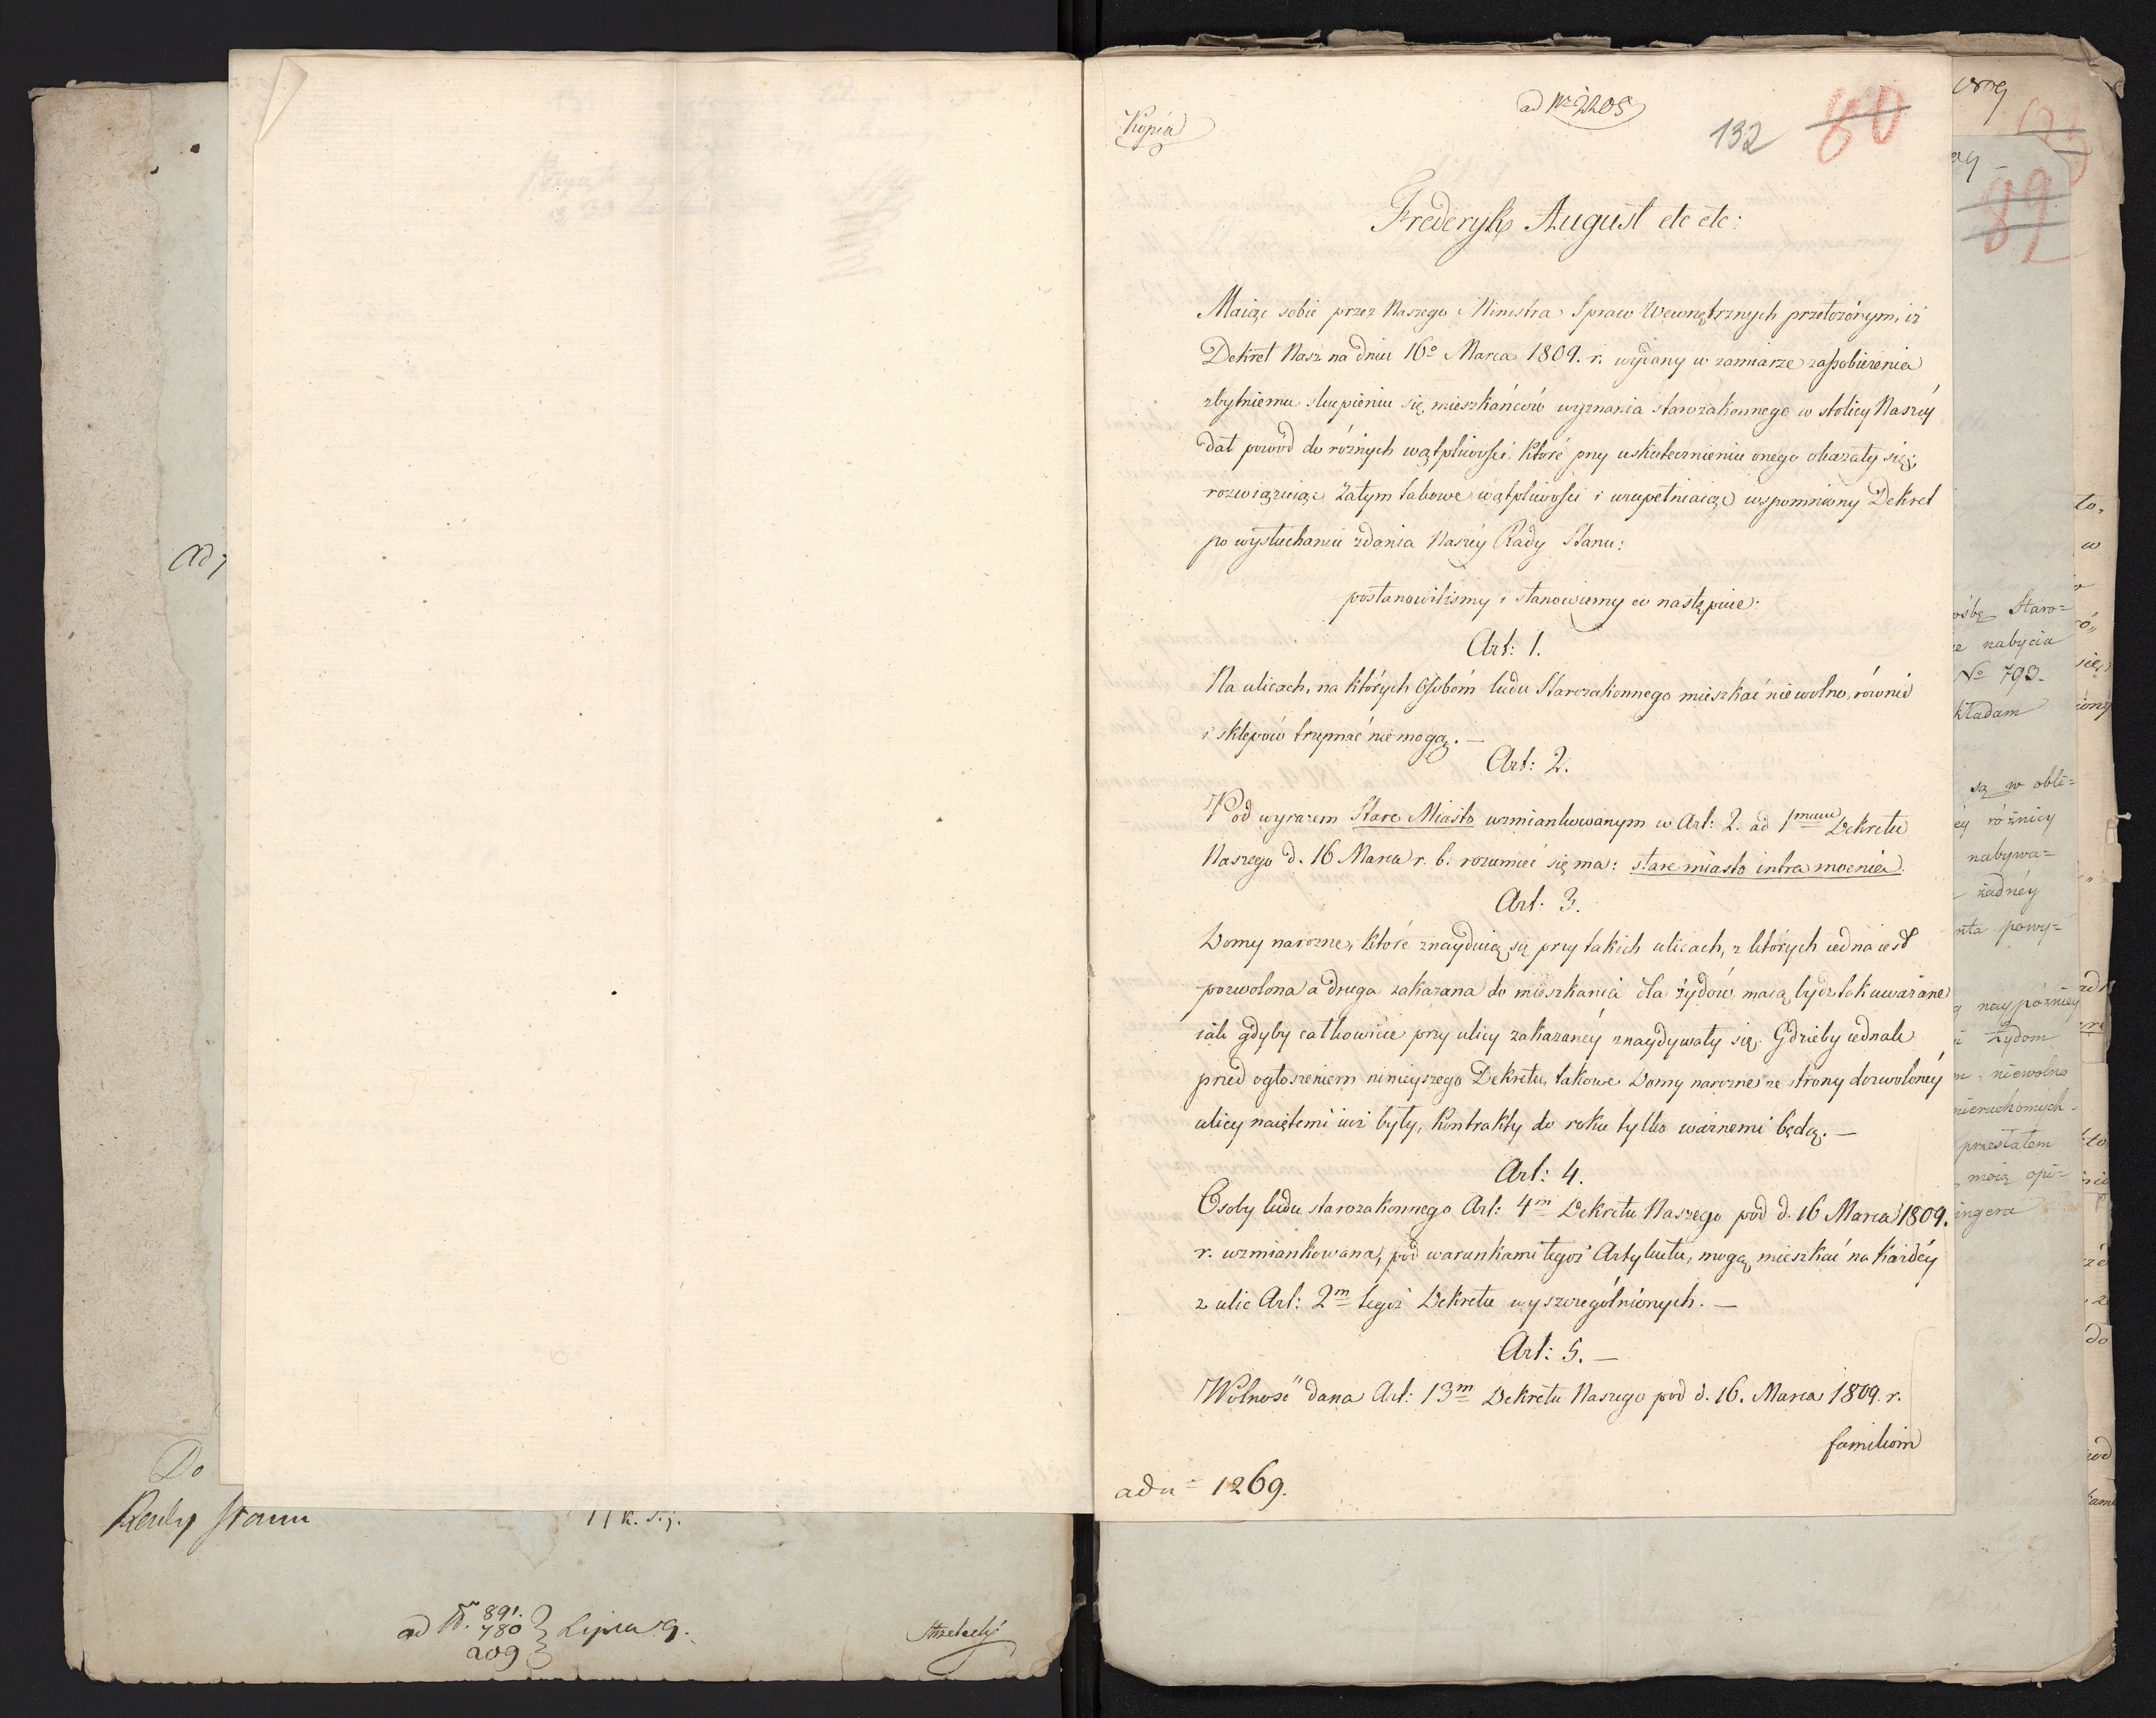 ad Nr 2205
Kopia
132 80
Frederyk August etc etc:
Maiąc sobie przez Naszego Ministra Spraw Wewnętrznych przełożonym, iż
Dekret Nasz na dniu 16o Marca 1809. r. wydany w zamiarze zapobieżenia
zbytniemu skupieniu się mieszkańców wyznania starozakonnego w stolicy Naszéy
dał powód do różnych wątpliwości, które przy uskutecznieniu onego okazały się;
rozwiązuiąc zatym takowe wątpliwości i uzupełniaiąc wspomniony Dekret
po wysłuchaniu zdania Naszéy Rady Stanu:
postanowiliśmy i stanowiemy co następuie:
Art: 1.
Na ulicach, na których Osobom ludu Starozakonnego mieszkać nie wolno, równie
i sklepów trzymać nie mogą. —
Art: 2.
Pod wyrazem Stare Miasto wzmiankowanym w Art: 2. ad 1mum Dekretu
Naszego d. 16 Marca r. b. rozumieć się ma: stare miasto intra moenia.
Art: 3.
Domy narożne, które znayduią się przy takich ulicach, z których iedna iest
pozwolona a druga zakazana do mieszkania dla żydów maią bydź tak uważane
iak gdyby całkowicie przy ulicy zakazanéy znaydywały się. Gdzieby iednak
przed ogłoszeniem ninieyszego Dekretu, takowe Domy narożne ze strony dozwolonéy
ulicy naiętemi iuż były, Kontrakty do roku tylko ważnemi będą. —
Art: 4.
Osoby ludu starozakonnego Art: 4m Dekretu Naszego pod d. 16 Marca 1809.
r. wzmiankowana, pod warunkami tegoż Artykułu, mogą mieszkać na każdéy
z ulic Art: 2m tegoż Dekretu wyszczególnionych. —
Art: 5. —
Wolność dana Art: 13m Dekretu Naszego pod d. 16. Marca 1809. r.
familiom
ad n= 1269.
1809
89
ośbę Staro=
e nabycia
No 793.
kładam
są w obli=
éy różnicy
nabywa=
żadnéy
nta powy=
nay późniey
żydom
niewolno
nieruchomych
przesłałem
moią opi=
ingera
Do
Rady Stanu
ad N. 891.
780
209
Lipca 9.